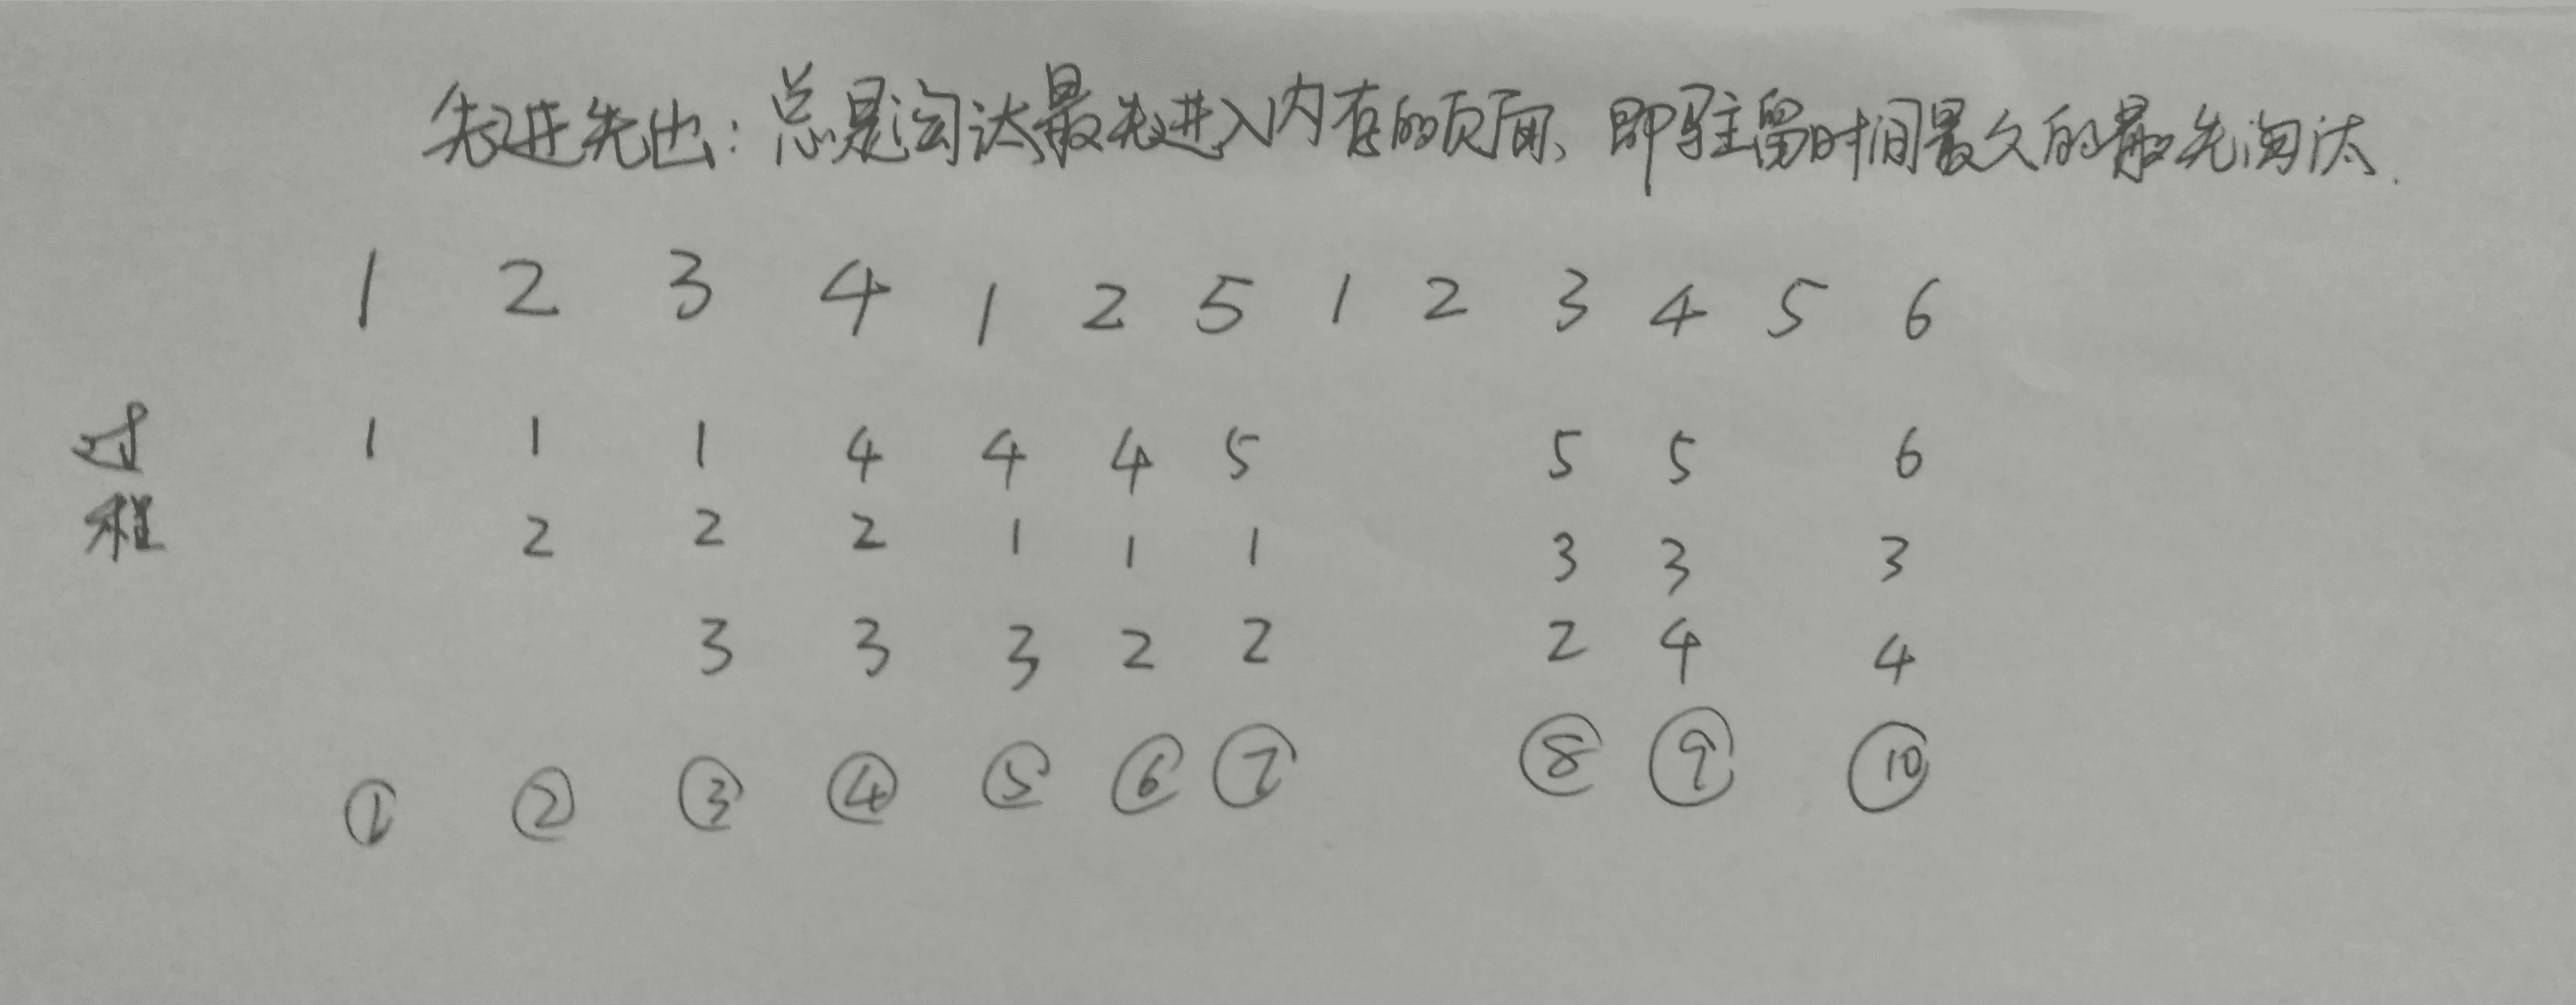 先进先出：总是淘汰最先进入内存的页面、即驻留时间最久的最先淘汰.
1 2 3 4 1 2 5 1 2 3 4 5 6
过 1 1 1 4 4 4 5 5 5 6
程 2 2 2 1 1 1 3 3 3
3 3 3 2 2 2 4 4
① ② ③ ④ ⑤ ⑥ ⑦ ⑧ ⑨ ⑩